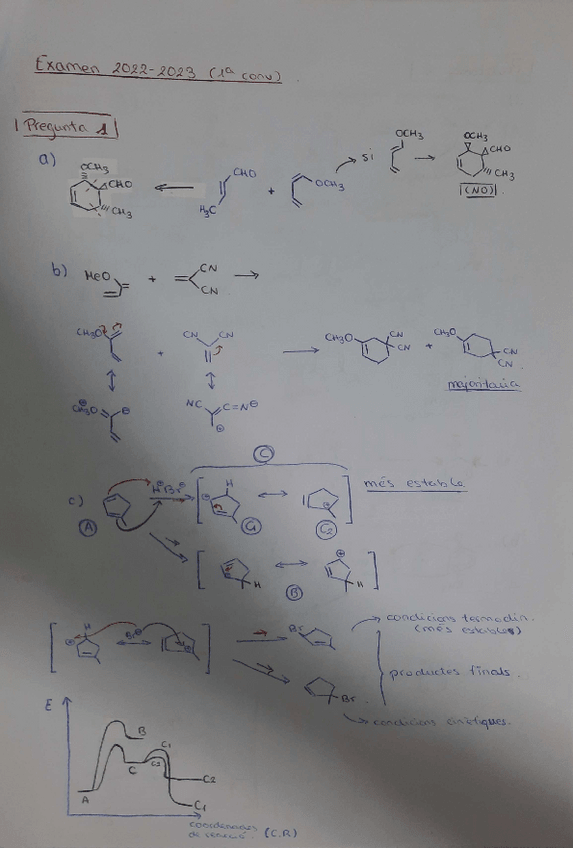 Examen 2022-2023 (1ª conv)
Pregunta 1
a)
OCH3
CHO
CH3
CHO
H3C
+
OCH3
si
OCH3
OCH3
CHO
CH3
(NO)
b)
MeO
+
CN
CN
CH3O
+
CN
CN
CH3O
CN
CN
+
CH3O
CN
CN
majoritària
CH3O
NC
C=N
C
c)
H Br
H
més estable
A
C1
C2
H
B
H
Br
Br
condicions termodin.
(més estables)
productes finals.
Br
condicions cinètiques.
E
B
C1
C2
C
A
C2
C1
coordenades
de reacció (C.R)